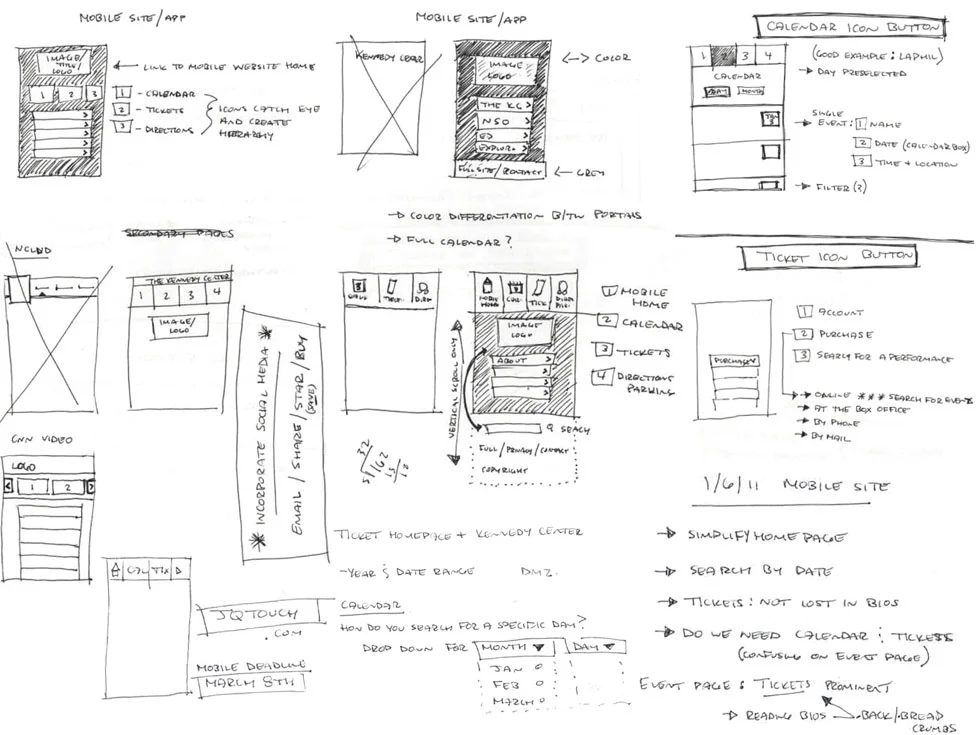 MOBILE SITE/APP
IMAGE/
TITLE/
LOGO
← LINK TO MOBILE WEBSITE HOME
1 2 3
1 - CALENDAR
2 - TICKETS
3 - DIRECTIONS
ICONS CATCH EYE
AND CREATE
HIERARCHY
MOBILE SITE/APP
KENNEDY CENTER
IMAGE
LOGO
<-> COLOR
THE KC >
NSO >
ED >
EXPLORE >
FULL SITE/CONTACT
← GREY
→ COLOR DIFFERENTIATION B/TW PORTALS
→ FULL CALENDAR?
CALENDAR ICON BUTTON
1 2 3 4
CALENDAR
DAY MONTH
(GOOD EXAMPLE: LAPHIL)
→ DAY PRESELECTED
→ SINGLE
EVENT: 1 NAME
2 DATE (CALENDAR BOX)
3 TIME + LOCATION
→ FILTER (?)
SECONDARY PAGES
THE KENNEDY CENTER
1 2 3 4
IMAGE/
LOGO
CNN VIDEO
LOGO
< 1 2 >
* INCORPORATE SOCIAL MEDIA *
EMAIL / SHARE / STAR / BUY
(SAVE)
MOBILE
HOME
IMAGE
LOGO
ABOUT >
VERTICAL SCROLL ONLY
FULL / PRIVACY / CONTACT
COPYRIGHT
1 MOBILE
HOME
2 CALENDAR
3 TICKETS
4 DIRECTIONS
PARKING
TICKET ICON BUTTON
PURCHASE
1 ACCOUNT
2 PURCHASE
3 SEARCH FOR A PERFORMANCE
→ ONLINE *** SEARCH FOR EVENT
→ AT THE BOX OFFICE
→ BY PHONE
→ BY MAIL
JQTOUCH
.COM
MOBILE DEADLINE
MARCH 8TH
TICKET HOMEPAGE + KENNEDY CENTER
- YEAR & DATE RANGE
CALENDAR
HOW DO YOU SEARCH FOR A SPECIFIC DAY?
DROP DOWN FOR MONTH ▼ DAY ▼
JAN 0
FEB 0
MARCH 0
1/6/11 MOBILE SITE
→ SIMPLIFY HOME PAGE
→ SEARCH BY DATE
→ TICKETS: NOT LOST IN BIOS
→ DO WE NEED CALENDAR & TICKETS
(CONFUSING ON EVENT PAGE)
EVENT PAGE: TICKETS PROMINENT
→ READING BIOS → BACK/BREAD
CRUMBS